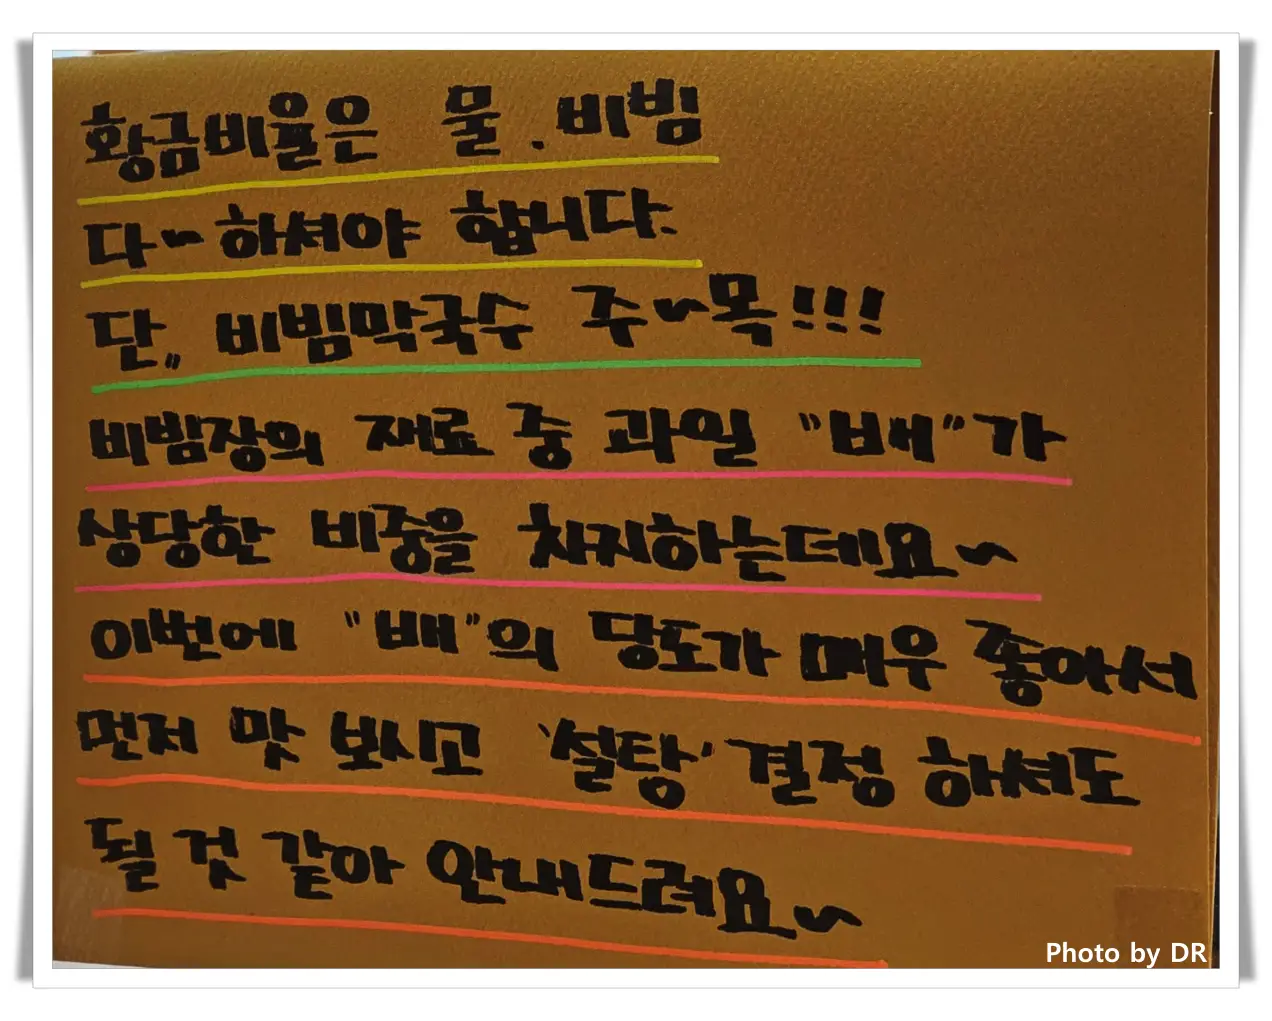 황금비율은 물. 비빔
다~하셔야 합니다.
단,, 비빔막국수 주~목!!!
비빔장의 재료 중 과일 "배"가
상당한 비중을 차지하는데요~
이번에 "배"의 당도가 매우 좋아서
먼저 맛 보시고 '설탕' 결정 하셔도
될 것 같아 안내드려요~
Photo by DR